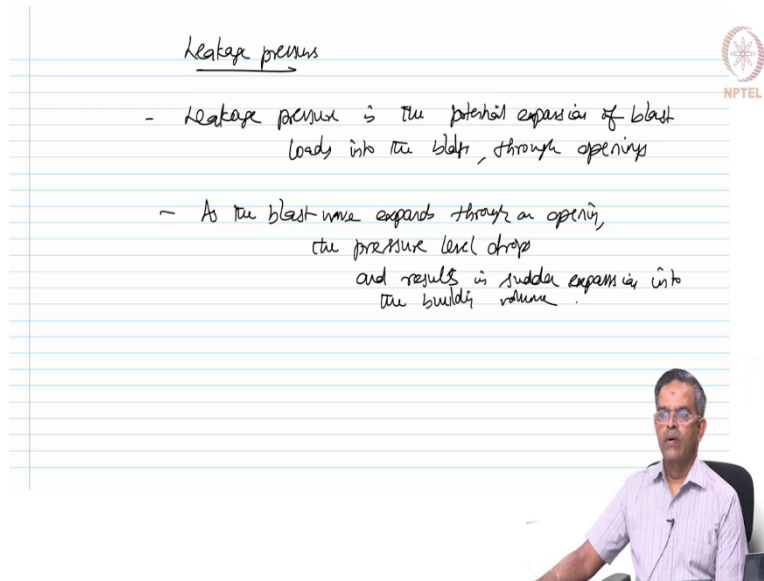 Leakage pressures
NPTEL
- Leakage pressure is the potential expansion of blast
loads into the bldgs, through openings
- As the blast wave expands through an opening,
the pressure level drops
and results in sudden expansion into
the building volume.